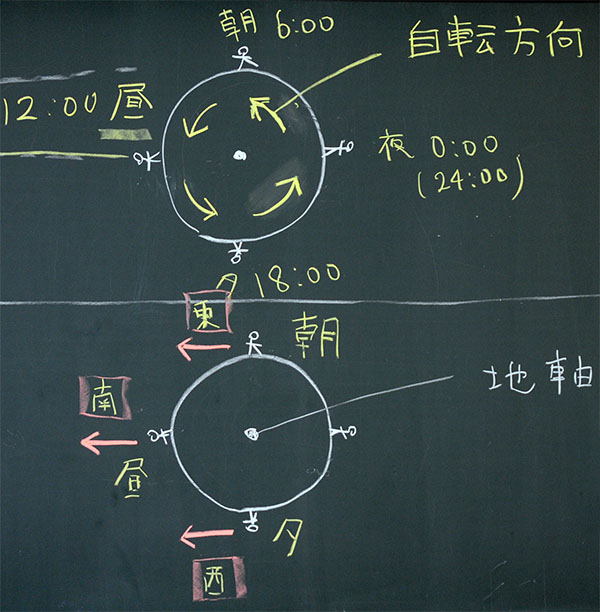 朝 6:00
自転方向
12:00 昼
夜 0:00
(24:00)
夕 18:00
東
朝
南
地軸
昼
夕
西